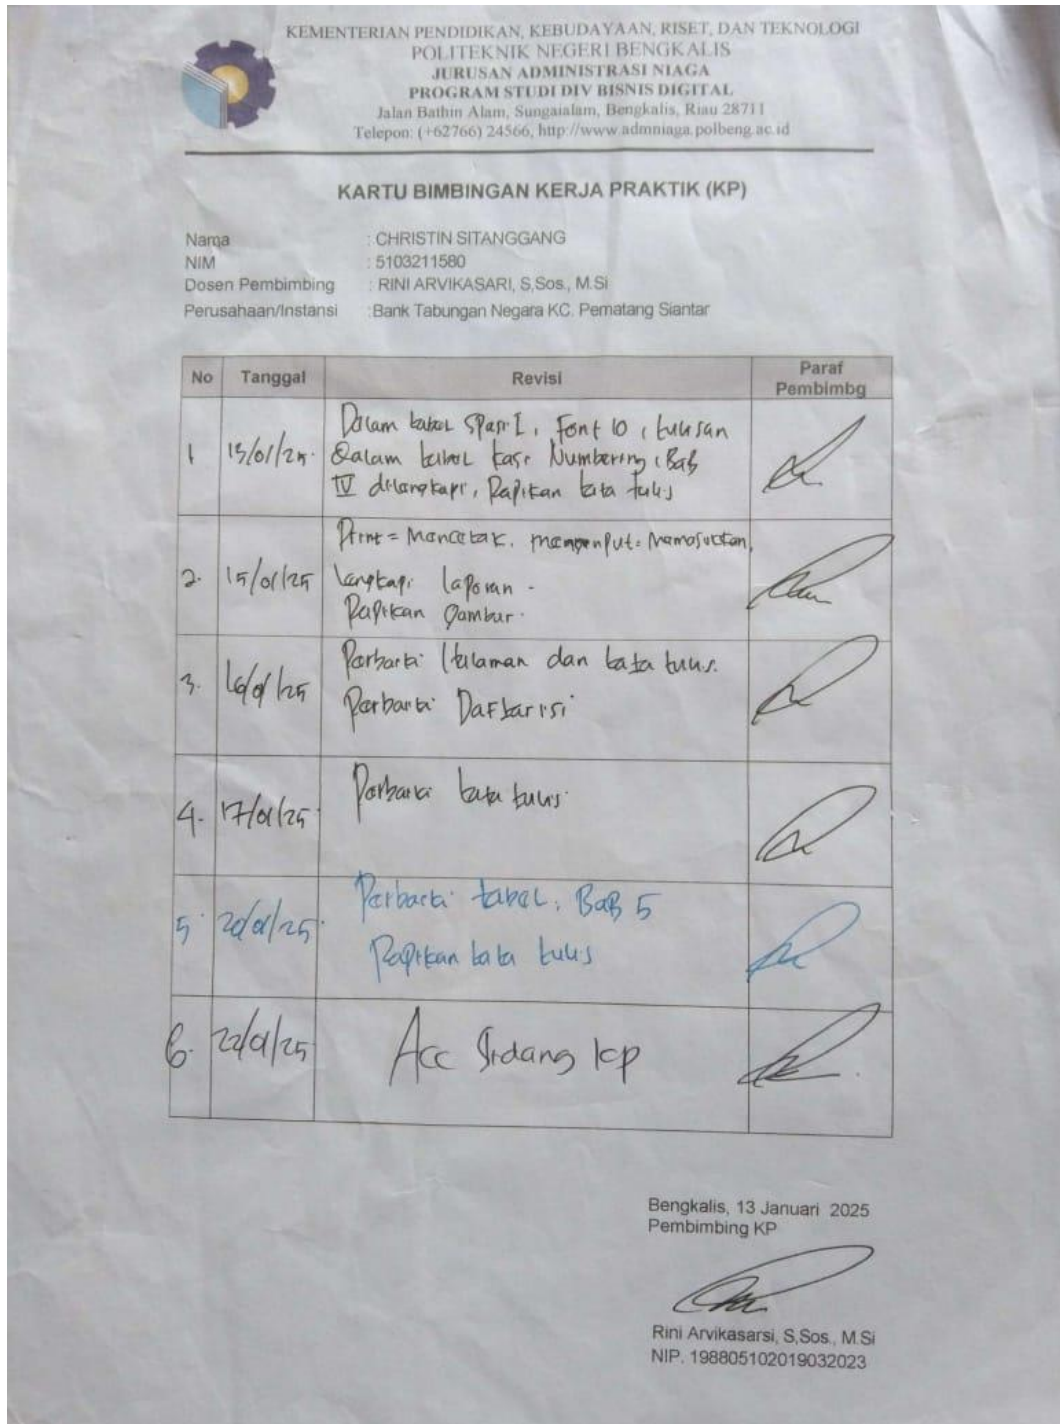 KEMENTERIAN PENDIDIKAN, KEBUDAYAAN, RISET, DAN TEKNOLOGI
POLITEKNIK NEGERI BENGKALIS
JURUSAN ADMINISTRASI NIAGA
PROGRAM STUDI DIV BISNIS DIGITAL
Jalan Bathin Alam, Sungaialam, Bengkalis, Riau 28711
Telepon: (+62766) 24566, http://www.admniaga.polbeng.ac.id
KARTU BIMBINGAN KERJA PRAKTIK (KP)
Nama : CHRISTIN SITANGGANG
NIM : 5103211580
Dosen Pembimbing : RINI ARVIKASARI, S,Sos., M.Si
Perusahaan/Instansi :Bank Tabungan Negara KC. Pematang Siantar
No Tanggal Revisi Paraf
Pembimbg
Dalam tabel Spasi 1, Font 10, tulisan
1 13/01/25. Dalam tabel kasi Numbering, Bab
IV dilengkapi, Rapikan tata tulis
Print = Mencetak, mengenput = Memasukkan,
2. 15/01/25 Lengkapi laporan.
Rapikan Gambar.
Perbaiki Halaman dan tata tulis.
3. 16/01/25
Perbaiki Daftar isi
Perbaiki tata tulis.
4. 17/01/25
Perbaiki tabel, BAB 5
5. 20/01/25.
Rapikan tata tulis
6. 22/01/25 Acc Sidang KP
Bengkalis, 13 Januari 2025
Pembimbing KP
Rini Arvikasarsi, S,Sos., M.Si
NIP. 198805102019032023